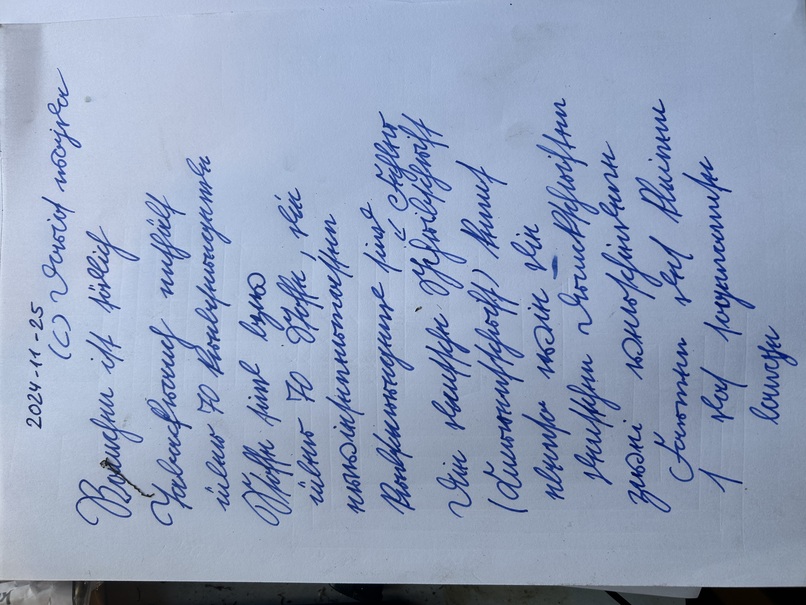 2024-11-25
(C)
Rauchen ist tödlich
Tabackrauch enthält
über 70 krebserregende
Stoffe sind bzw
über 70 Stoffe, die
erwiesenermassen
krebserregend sind
Fehler
Die deutsche Schreibschrift
(Kurrentschrift) kennt
ebenso wie die
deutschen Druckschriften
zwei verschiedene
Formen des kleinen
ſ das sogenannte
lange